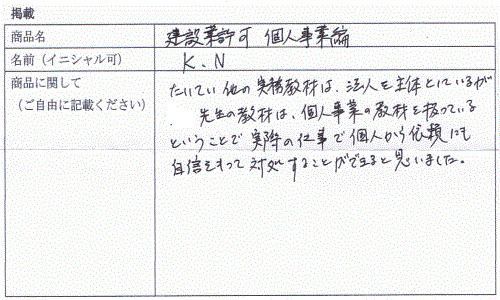 掲載
商品名 建設業許可 個人事業編
名前（イニシャル可） K.N
商品に関して
（ご自由に記載ください）
たいてい他の実務教材は、法人を主体としているが
先生の教材は、個人事業の教材を扱っている
ということで実際の仕事で個人から依頼にも
自信をもって対処することができると思いました。